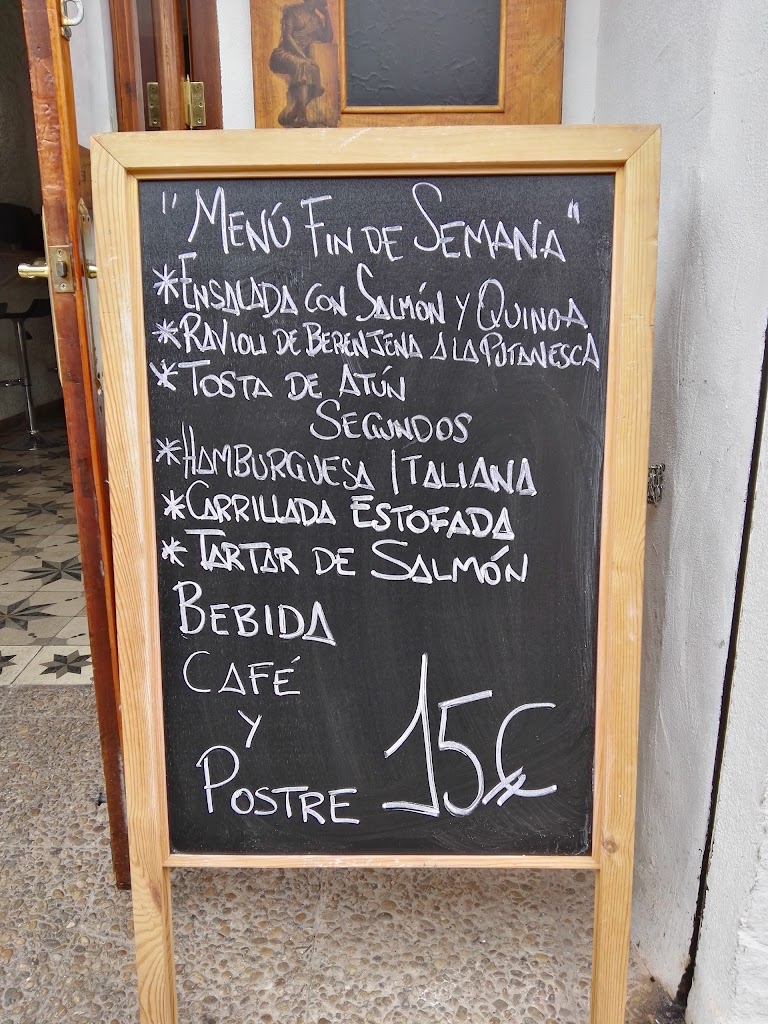 "MENÚ FIN DE SEMANA"
*ENSALADA CON SALMÓN Y QUINOA
*RAVIOLI DE BERENJENA A LA PUTANESCA
*TOSTA DE ATÚN
SEGUNDOS
*HAMBURGUESA ITALIANA
*CARRILLADA ESTOFADA
*TARTAR DE SALMÓN
BEBIDA
CAFÉ
Y
POSTRE 15€